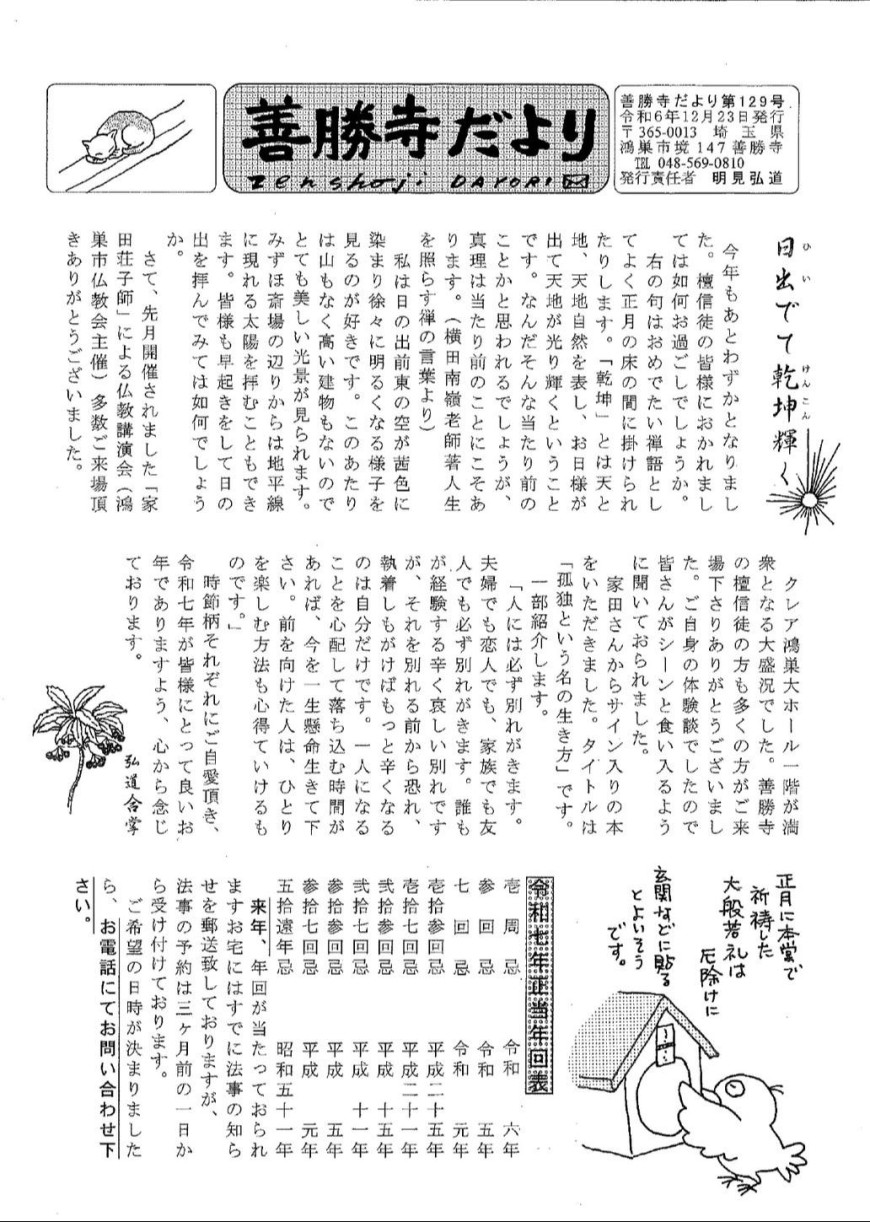 善勝寺だより
zenshoji DAYORI
善勝寺だより第129号
令和6年12月23日発行
〒365-0013 埼玉県
鴻巣市境147善勝寺
℡ 048-569-0810
発行責任者 明見弘道
日出でて乾坤輝く
ひ い けんこん
今年もあとわずかとなりまし
た。檀信徒の皆様におかれまし
ては如何お過ごしでしょうか。
右の句はおめでたい禅語とし
てよく正月の床の間に掛けられ
たりします。「乾坤」とは天と
地、天地自然を表し、お日様が
出て天地が光り輝くということ
です。なんだそんな当たり前の
ことかと思われるでしょうが、
真理は当たり前のことにこそあ
ります。(横田南嶺老師著人生
を照らす禅の言葉より)
私は日の出前東の空が茜色に
染まり徐々に明るくなる様子を
見るのが好きです。このあたり
は山もなく高い建物もないので
とても美しい光景が見られます。
みずほ斎場の辺りからは地平線
に現れる太陽を拝むこともでき
ます。皆様も早起きをして日の
出を拝んでみては如何でしょう
か。
さて、先月開催されました「家
田荘子師」による仏教講演会(鴻
巣市仏教会主催)多数ご来場頂
きありがとうございました。
クレア鴻巣大ホール一階が満
衆となる大盛況でした。善勝寺
の檀信徒の方も多くの方がご来
場下さりありがとうございまし
た。ご自身の体験談でしたので
皆さんがシーンと食い入るよう
に聞いておられました。
家田さんからサイン入りの本
をいただきました。タイトルは
「孤独という名の生き方」です。
一部紹介します。
「人には必ず別れがきます。
夫婦でも恋人でも、家族でも友
人でも必ず別れがきます。誰も
が経験する辛く哀しい別れです
が、それを別れる前から恐れ、
執着しもがけばもっと辛くなる
のは自分だけです。一人になる
ことを心配して落ち込む時間が
あれば、今を一生懸命生きて下
さい。前を向けた人は、ひとり
を楽しむ方法も心得ていけるも
のです。」
時節柄それぞれにご自愛頂き、
令和七年が皆様にとって良いお
年でありますよう、心から念じ
ております。
弘道合掌
正月に本堂で
祈祷した
大般若札は
厄除けに
玄関などに貼る
とよいそう
です。
令和七年正当年回表
壱周忌 令和 六年
参回忌 令和 五年
七回忌 令和 元年
壱拾参回忌 平成二十五年
壱拾七回忌 平成二十一年
弐拾参回忌 平成 十五年
弐拾七回忌 平成 十一年
参拾参回忌 平成 五年
参拾七回忌 平成 元年
五拾遠年忌 昭和五十一年
来年、年回が当たっておられ
ますお宅にはすでに法事の知ら
せを郵送致しておりますが、
法事の予約は三ヶ月前の一日か
ら受け付けております。
ご希望の日時が決まりました
ら、お電話にてお問い合わせ下
さい。